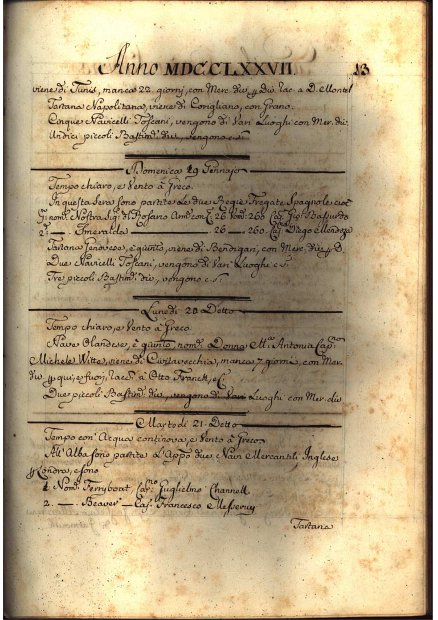 Anno MDCCLXXVII. 13
viene di Tunis, manca 22 giorni, con Merc. div.
Tartana Napolitana, viene di Corigliano, con Grano.
Cinque Navicelli Toscani, vengono di Vari Luoghi con Mer. div.
Undici piccoli Bastim. div. vengono c. s.
Domenica 19 Gennajo
Tempo chiaro, e Vento à Greco.
In questa sera sono partite le due Regie Fregate Spagnole cioè
Nostra Sig. di Rosario 26 260
2ª — Smeralda — 26 — 260 Diego Mendoza
Tartana Genovese, è giunto, viene di Bendigan, con Merc. div.
Due Navicelli Toscani, vengono di Vari Luoghi c. s.
Tre piccoli Bastim. div. vengono c. s.
Lunedi 20 Detto
Tempo chiaro, e Vento à Greco
Nave Olandese, è giunto, nom. Donna M.ª Antonia Cap.no
Michele Witte, viene di Civitavecchia, manca 7 giorni, con Mer.
div. qui, e fuori, Otto Franck, e C.
Due piccoli Bastim. div. vengono di Vari Luoghi con Mer. div.
Martedi 21 Detto
Tempo con Acqua continova, e Vento à Greco
All'Alba sono partite L'App.o due Navi Mercantili Inglese
Londra, e sono
1 Nom. Ferryboat Cap.no Guglielmo Channell
2. — Beaver — Cap. Francesco Messervy
Tartana